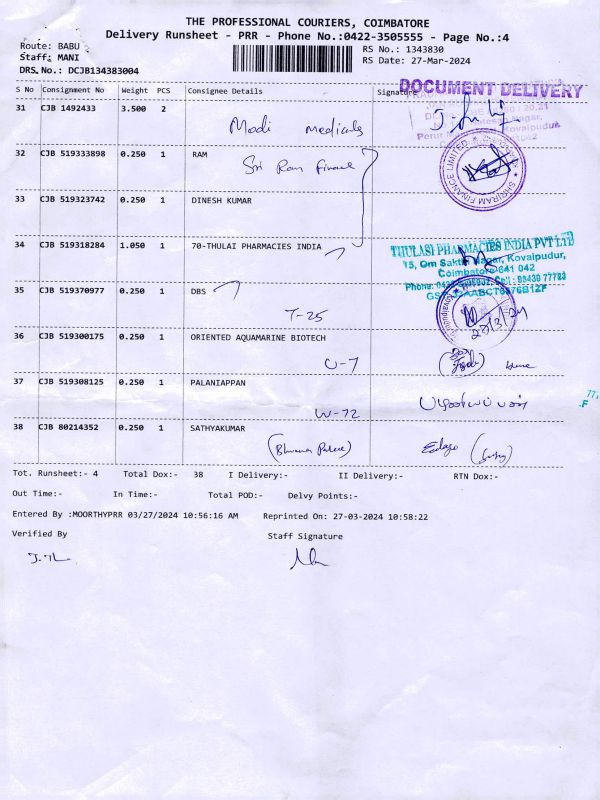 THE PROFESSIONAL COURIERS, COIMBATORE
Delivery Runsheet - PRR - Phone No.:0422-3505555 - Page No.:4
Route: BABU
RS No.: 1343830
Staff: MANI
RS Date: 27-Mar-2024
DRS No.: DCJB134383004
S No Consignment No Weight PCS Consignee Details Signature
DOCUMENT DELIVERY
31 CJB 1492433 3.500 2
Modi Medicals
32 CJB 519333898 0.250 1 RAM
Sri Ram Finance
SHRIRAM FINANCE LIMITED
33 CJB 519323742 0.250 1 DINESH KUMAR
34 CJB 519318284 1.050 1 70-THULAI PHARMACIES INDIA
THULASI PHARMACIES INDIA PVT LTD
15, Om Sakthi Nagar, Kovaipudur,
Coimbatore-641 042
35 CJB 519370977 0.250 1 DBS
T-25
28/3/24
36 CJB 519300175 0.250 1 ORIENTED AQUAMARINE BIOTECH
U-7
37 CJB 519308125 0.250 1 PALANIAPPAN
W-72
38 CJB 80214352 0.250 1 SATHYAKUMAR
Tot. Runsheet:- 4 Total Dox:- 38 I Delivery:- II Delivery:- RTN Dox:-
Out Time:- In Time:- Total POD:- Delvy Points:-
Entered By :MOORTHYPRR 03/27/2024 10:56:16 AM Reprinted On: 27-03-2024 10:58:22
Verified By Staff Signature